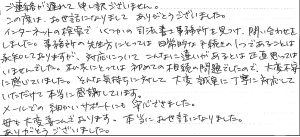 ご連絡が遅れて申し訳ございません。
この度は、お世話になりましてありがとうございました。
インターネットの検索で いくつかの司法書士事務所を見つけ、問い合わせを
しました。事務所の先生方にとっては日常的な手続きの1つであることは
承知しておりますが、対応について こんなに違いがあるとは正直思っては
いませんでした。私の家にとっては初めての相続の問題でしたので、大変不安
に感じていました。そんな気持ちに対して 大変 誠実に丁寧に対応して
いただけて本当に感謝しています。
メールでの細かいサポートにも 安心できました。
母も大変喜んでおります。本当にお世話になりました。
ありがとうございました。